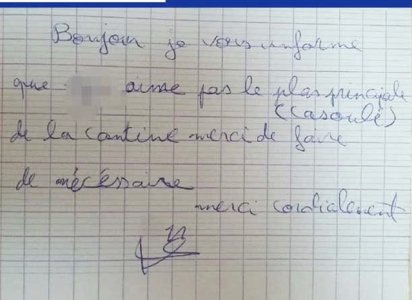 Bonjour je vous informe
que aime pas le plas principale
(Casoulé)
de la cantine merci de faire
de nécessaire
merci cordialement